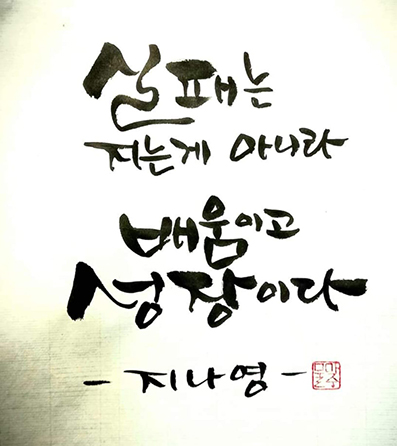 실패는
지는게 아니라
배움이고
성장이다
- 지나영 -